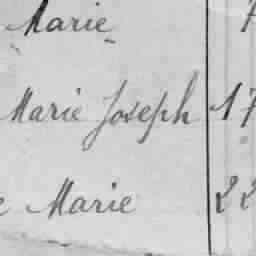 Marie
Marie Joseph 17
e Marie 22